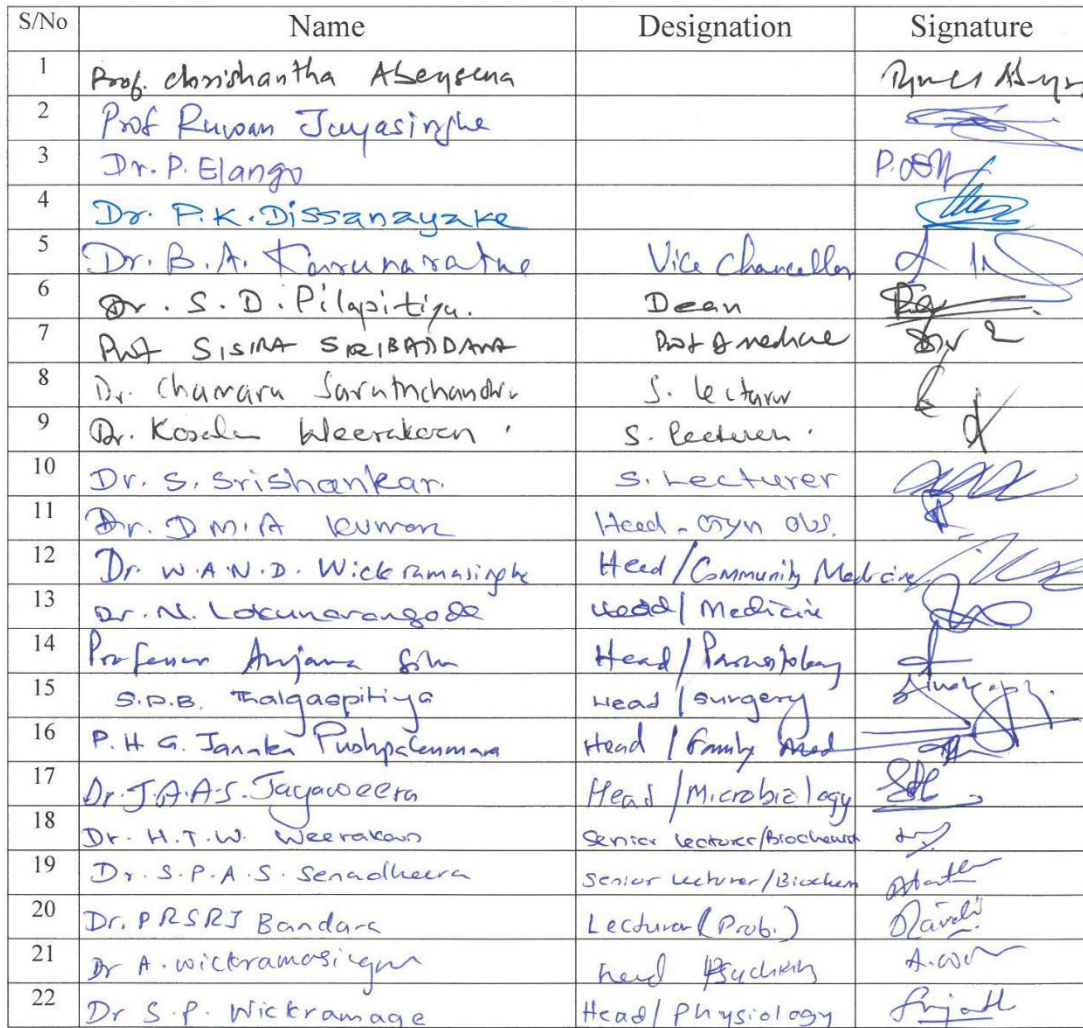 S/No Name Designation Signature
1 Prof. Chrishantha Abeysena
2 Prof Ruwan Jayasinghe
3 Dr. P. Elango
4 Dr. P.K. Dissanayake
5 Dr. B.A. Karunaratne Vice Chancellor
6 Dr. S. D. Pilapitiya. Dean
7 Prof SISIRA SIRIBADDANA Prof of medicine
8 Dr. Chamara Sarathchandra S. lecturer
9 Dr. Kosala Weerakoon. S. lecturer.
10 Dr. S. Srishankar. S. Lecturer
11 Dr. D M. A Kumara Head - Gyn obs.
12 Dr. W.A.N.D. Wickramasinghe Head / Community Medicine
13 Dr. N. Lokunarangoda Head / Medicine
14 Professor Anjana Silva Head / Parasitology
15 S.D.B. Thalgaspitiya Head / surgery
16 P. H G. Janaka Pushpakumara Head / Family Med
17 Dr. J.A.A.S. Jayaweera Head / Microbiology
18 Dr. H.T.W. Weerakoon Senior Lecturer/Biochemist
19 Dr. S.P.A.S. Senadheera Senior Lecturer/Biochem
20 Dr. PRSRJ Bandara Lecturer (Prob.)
21 Dr A. Wickramasinghe Head A.
22 Dr S.P. Wickramage Head/ Physiology